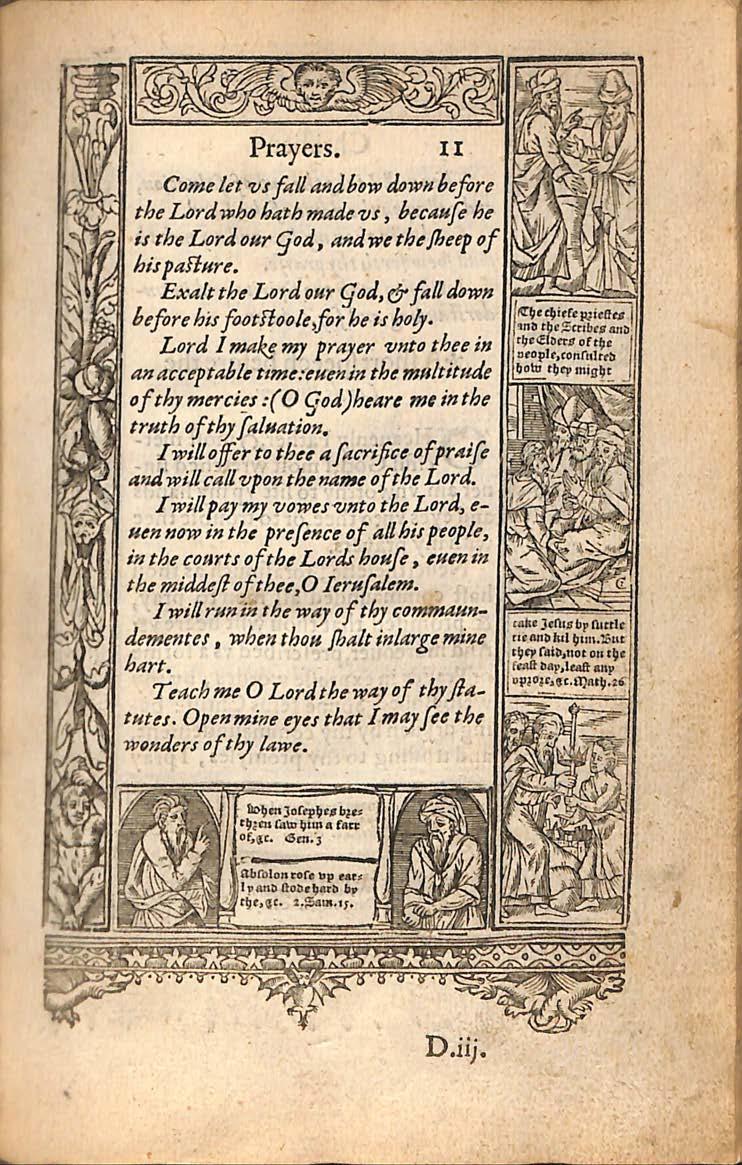 Prayers. 11
Come let vs fall and bow down before
the Lord who hath made vs, becauſe he
is the Lord our God, and we the ſheep of
his paſture.
Exalt the Lord our God, & fall down
before his footſtoole, for he is holy.
Lord I make my prayer vnto thee in
an acceptable time: euen in the multitude
of thy mercies: (O God) heare me in the
truth of thy ſaluation.
I will offer to thee a ſacrifice of praiſe
and will call vpon the name of the Lord.
I will pay my vowes vnto the Lord, e-
uen now in the preſence of all his people,
in the courts of the Lords houſe, euen in
the middeſt of thee, O Ieruſalem.
I will run in the way of thy commaun-
dementes, when thou ſhalt inlarge mine
hart.
Teach me O Lord the way of thy ſta-
tutes. Open mine eyes that I may ſee the
wonders of thy lawe.
The chiefe prieſtes
and the Scribes and
the Elders of the
people, conſulted
how they might
C
take Jeſus by ſuttle
tie and kil him. But
they ſaid, not on the
feaſt day, leaſt any
vprore, &c. Math. 26
When Joſephes bre-
thren ſaw him a farr
of, &c. Gen. 3
Abſolon roſe vp ear-
ly and ſtode hard by
the, &c. 2. Sam. 15.
D.iij.